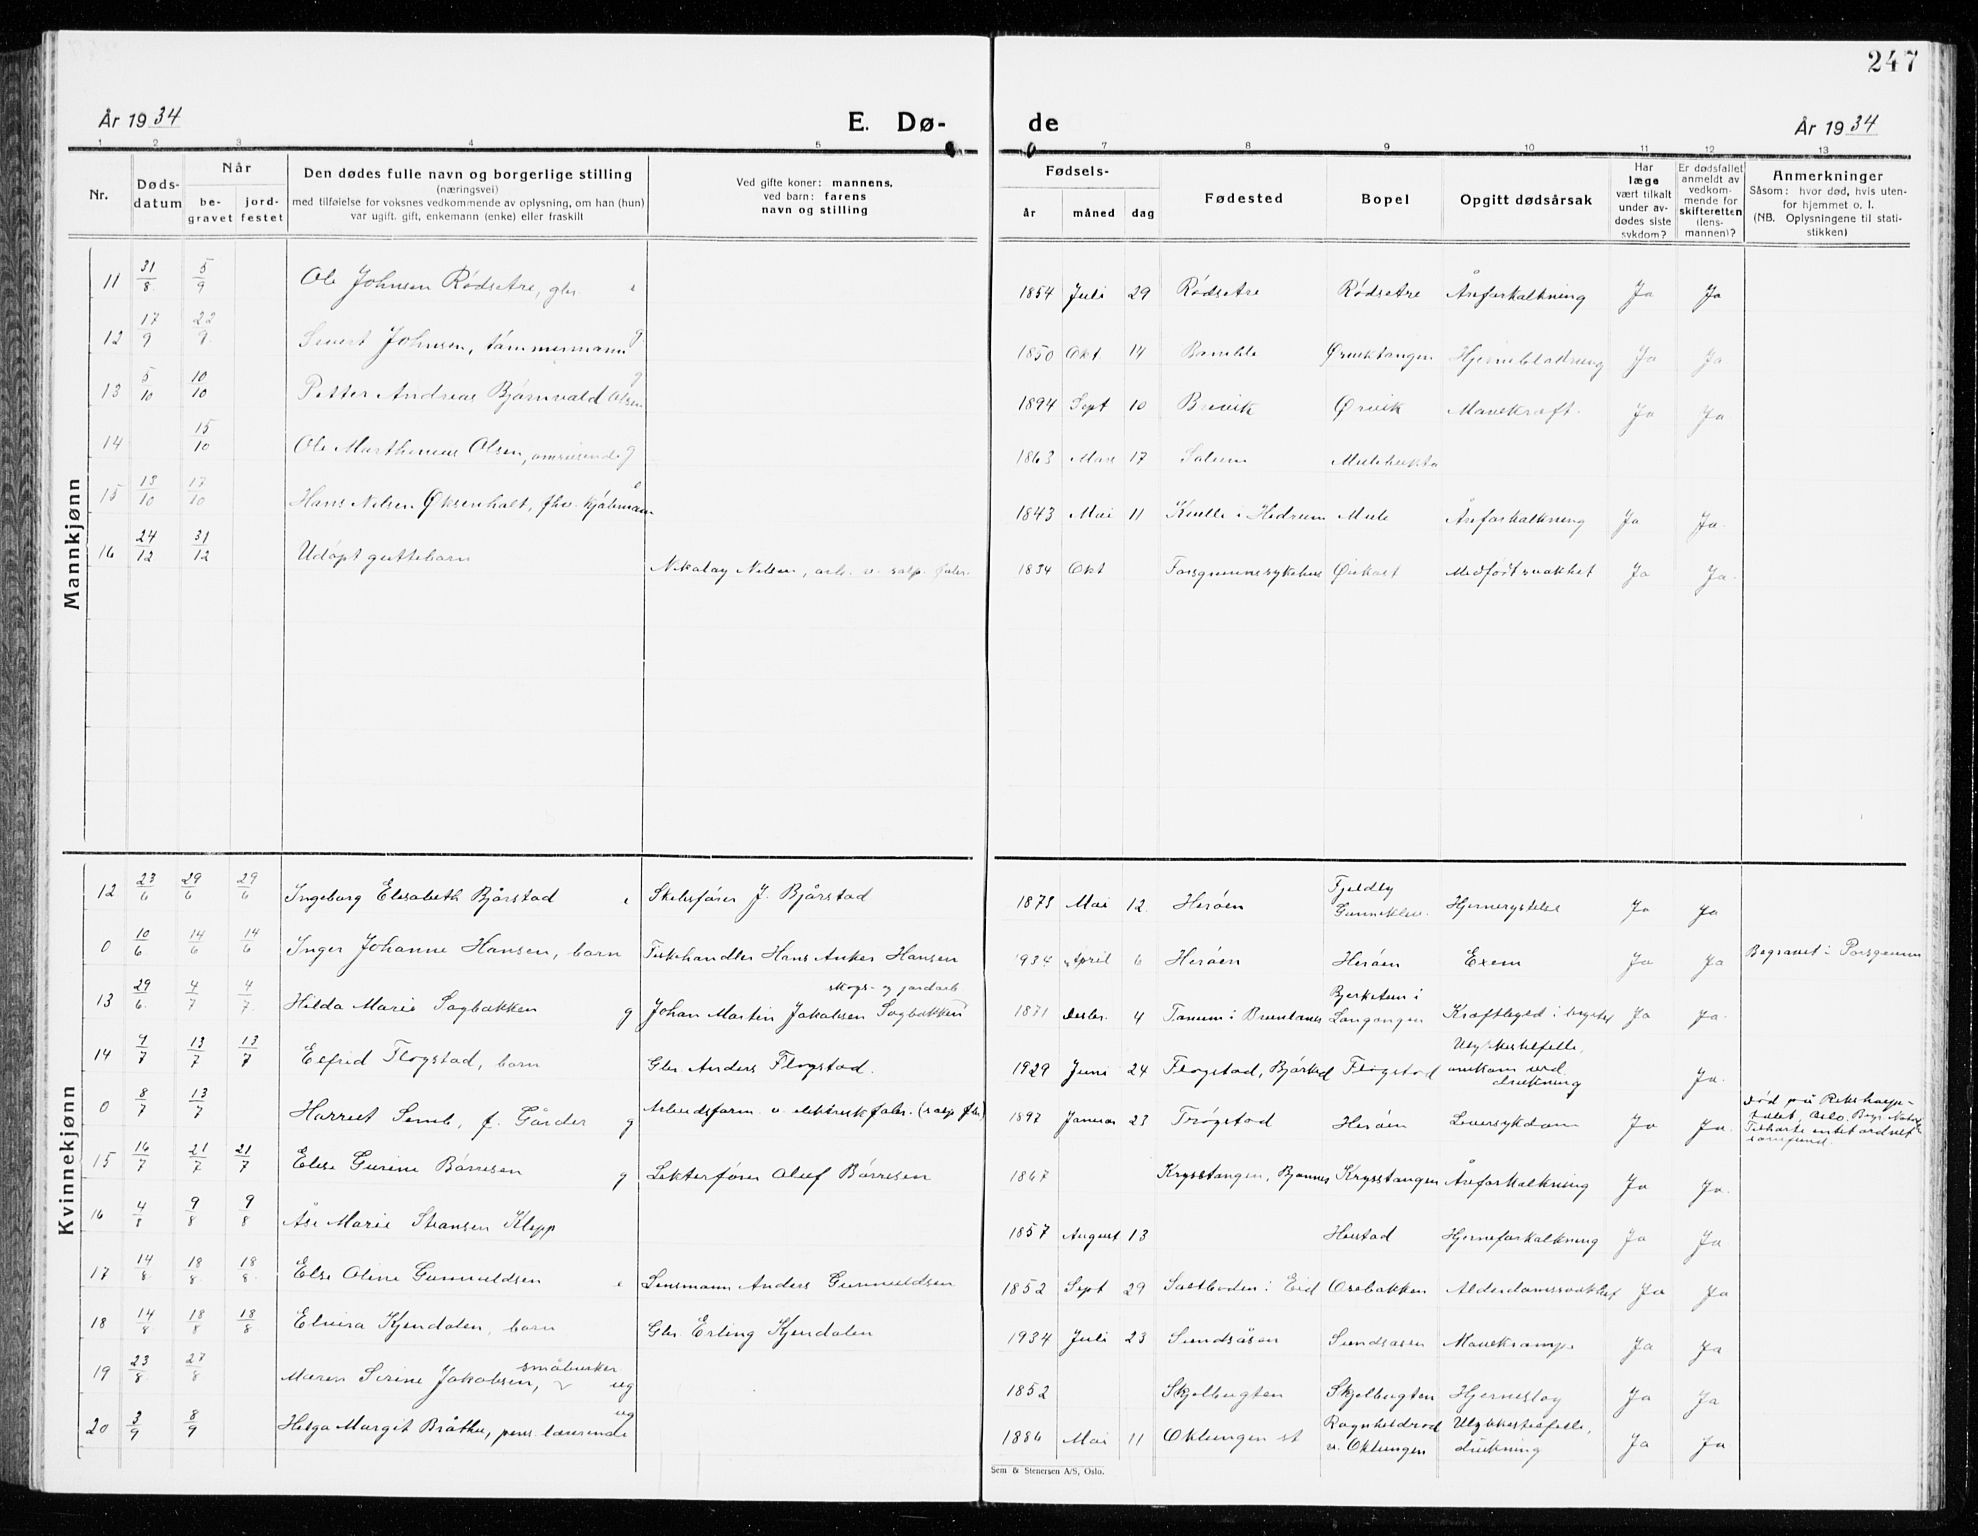 247
År 1934
E. Dø-
de
År 1934
1 2 3 4 5 7 8 9 10 11 12 13
Nr.
Døds-
datum
Når
be-
gravet
jord-
festet
Den dødes fulle navn og borgerlige stilling
(næringsvei)
med tilføielse for voksnes vedkommende av oplysning, om han (hun)
var ugift, gift, enkemann (enke) eller fraskilt
Ved gifte koner: mannens,
ved barn: farens
navn og stilling
Fødsels-
år måned dag
Fødested
Bopel
Opgitt dødsårsak
Har
læge
vært tilkalt
under av-
dødes siste
sykdom?
Er dødsfallet
anmeldt av
vedkom-
mende for
skifteretten
(lens-
mannen)?
Anmerkninger
Såsom: hvor død, hvis uten-
for hjemmet o. l.
(NB. Oplysningene til stati-
stikken)
Mannkjønn
11 31/8 5/9 Ole Johnsen Rødsetre, gbr. e 1854 Juli 29 Rødsetre Rødsetre Åreforkalkning Ja Ja
12 17/9 22/9 Sivert Johnsen, tømmermann g 1850 Okt 14 Bamble Ørviktangen Hjerneblødning Ja Ja
13 5/10 10/10 Petter Andreas Bjørnvald Olsen g 1894 Sept 10 Brevik Ørvik Mavekræft Ja Ja
14 15/10 Ole Marthinius Olsen, omreisende g 1863 Mars 17 Solum Mulebukta
15 13/10 17/10 Hans Nilsen Øksenholt, fhv. kjøbmann e 1843 Mai 11 Kvelle i Hedrum Mule Åreforkalkning Ja Ja.
16 24/12 31/12 Udøpt guttebarn Nikolay Nilsen, arb. v. salp. fabr. 1834 Okt Porsgrunns sykehus Ørekast Medfødt svakhet Ja Ja.
Kvinnekjønn
12 23/6 29/6 29/6 Ingeborg Elisabeth Bjørstad e Skibsfører J. Bjørstad 1873 Mai 12 Herøen Fjeldly
Gunneklev. Hjernerystelse Ja Ja
0 10/6 14/6 14/6 Inger Johanne Hansen, barn Fiskehandler Hans Anker Hansen 1934 April 6 Herøen Herøen Exem Ja Ja Begravet i Porsgrunn
13 29/6 4/7 4/7 Hilda Marie Sagbakken g Johan Martin Jakobsen Sagbakken skogs- og jordarb 1871 Desbr. 4 Tanum i Brunlanes Bjerketun i
Langangen Kræftbyld i brystet Ja Ja.
14 4/7 13/7 13/7 Elfrid Flogstad, barn Gbr. Anders Flogstad. 1929 Juni 24 Flogstad, Bjørkedal Flogstad Ulykkestilfelle,
omkom ved
drukning Ja.
0 8/7 13/7 Harriet Semb, f. Gårder g Arbeidsform. v. elektrisk fabr. (salp. fbr) 1897 Januar 23 Trøgstad Herøen Leversykdom Ja Ja. Død på Rikshospi-
talet, Oslo.
15 16/7 21/7 21/7 Elise Gurine Børresen g Lekterfører Oluf Børresen 1867 Krysstangen, Bjønnes Krysstangen Åreforkalkning Ja Ja.
16 4/8 9/8 9/8 Åse Marie Steansen Klepp 1857 August 13 Herstad Hjerneforkalkning Ja Ja
17 14/8 18/8 18/8 Else Oline Gunnuldsen e Lensmann Anders Gunnuldsen 1852 Sept 29 Saltboden i Eid Osebakken Alderdomssvakhet Ja Ja
18 14/8 18/8 18/8 Elvira Kjendalen, barn Gbr. Erling Kjendalen 1934 Juli 23 Sundsåsen Sundsåsen Mavekramp Ja Ja
19 23/8 27/8 Maren Sirine Jakobsen, småbruker ug 1852 Skjelbugten Skjelbugten Hjerneslag Ja Ja
20 3/9 8/9 Helga Margit Bråthe, pens. lærerinde ug 1886 Mai 11 Oklungen st Ragnhildrød
v. Oklungen Ulykkestilfelle,
drukning Ja Ja
Sem & Stenersen A/S, Oslo.